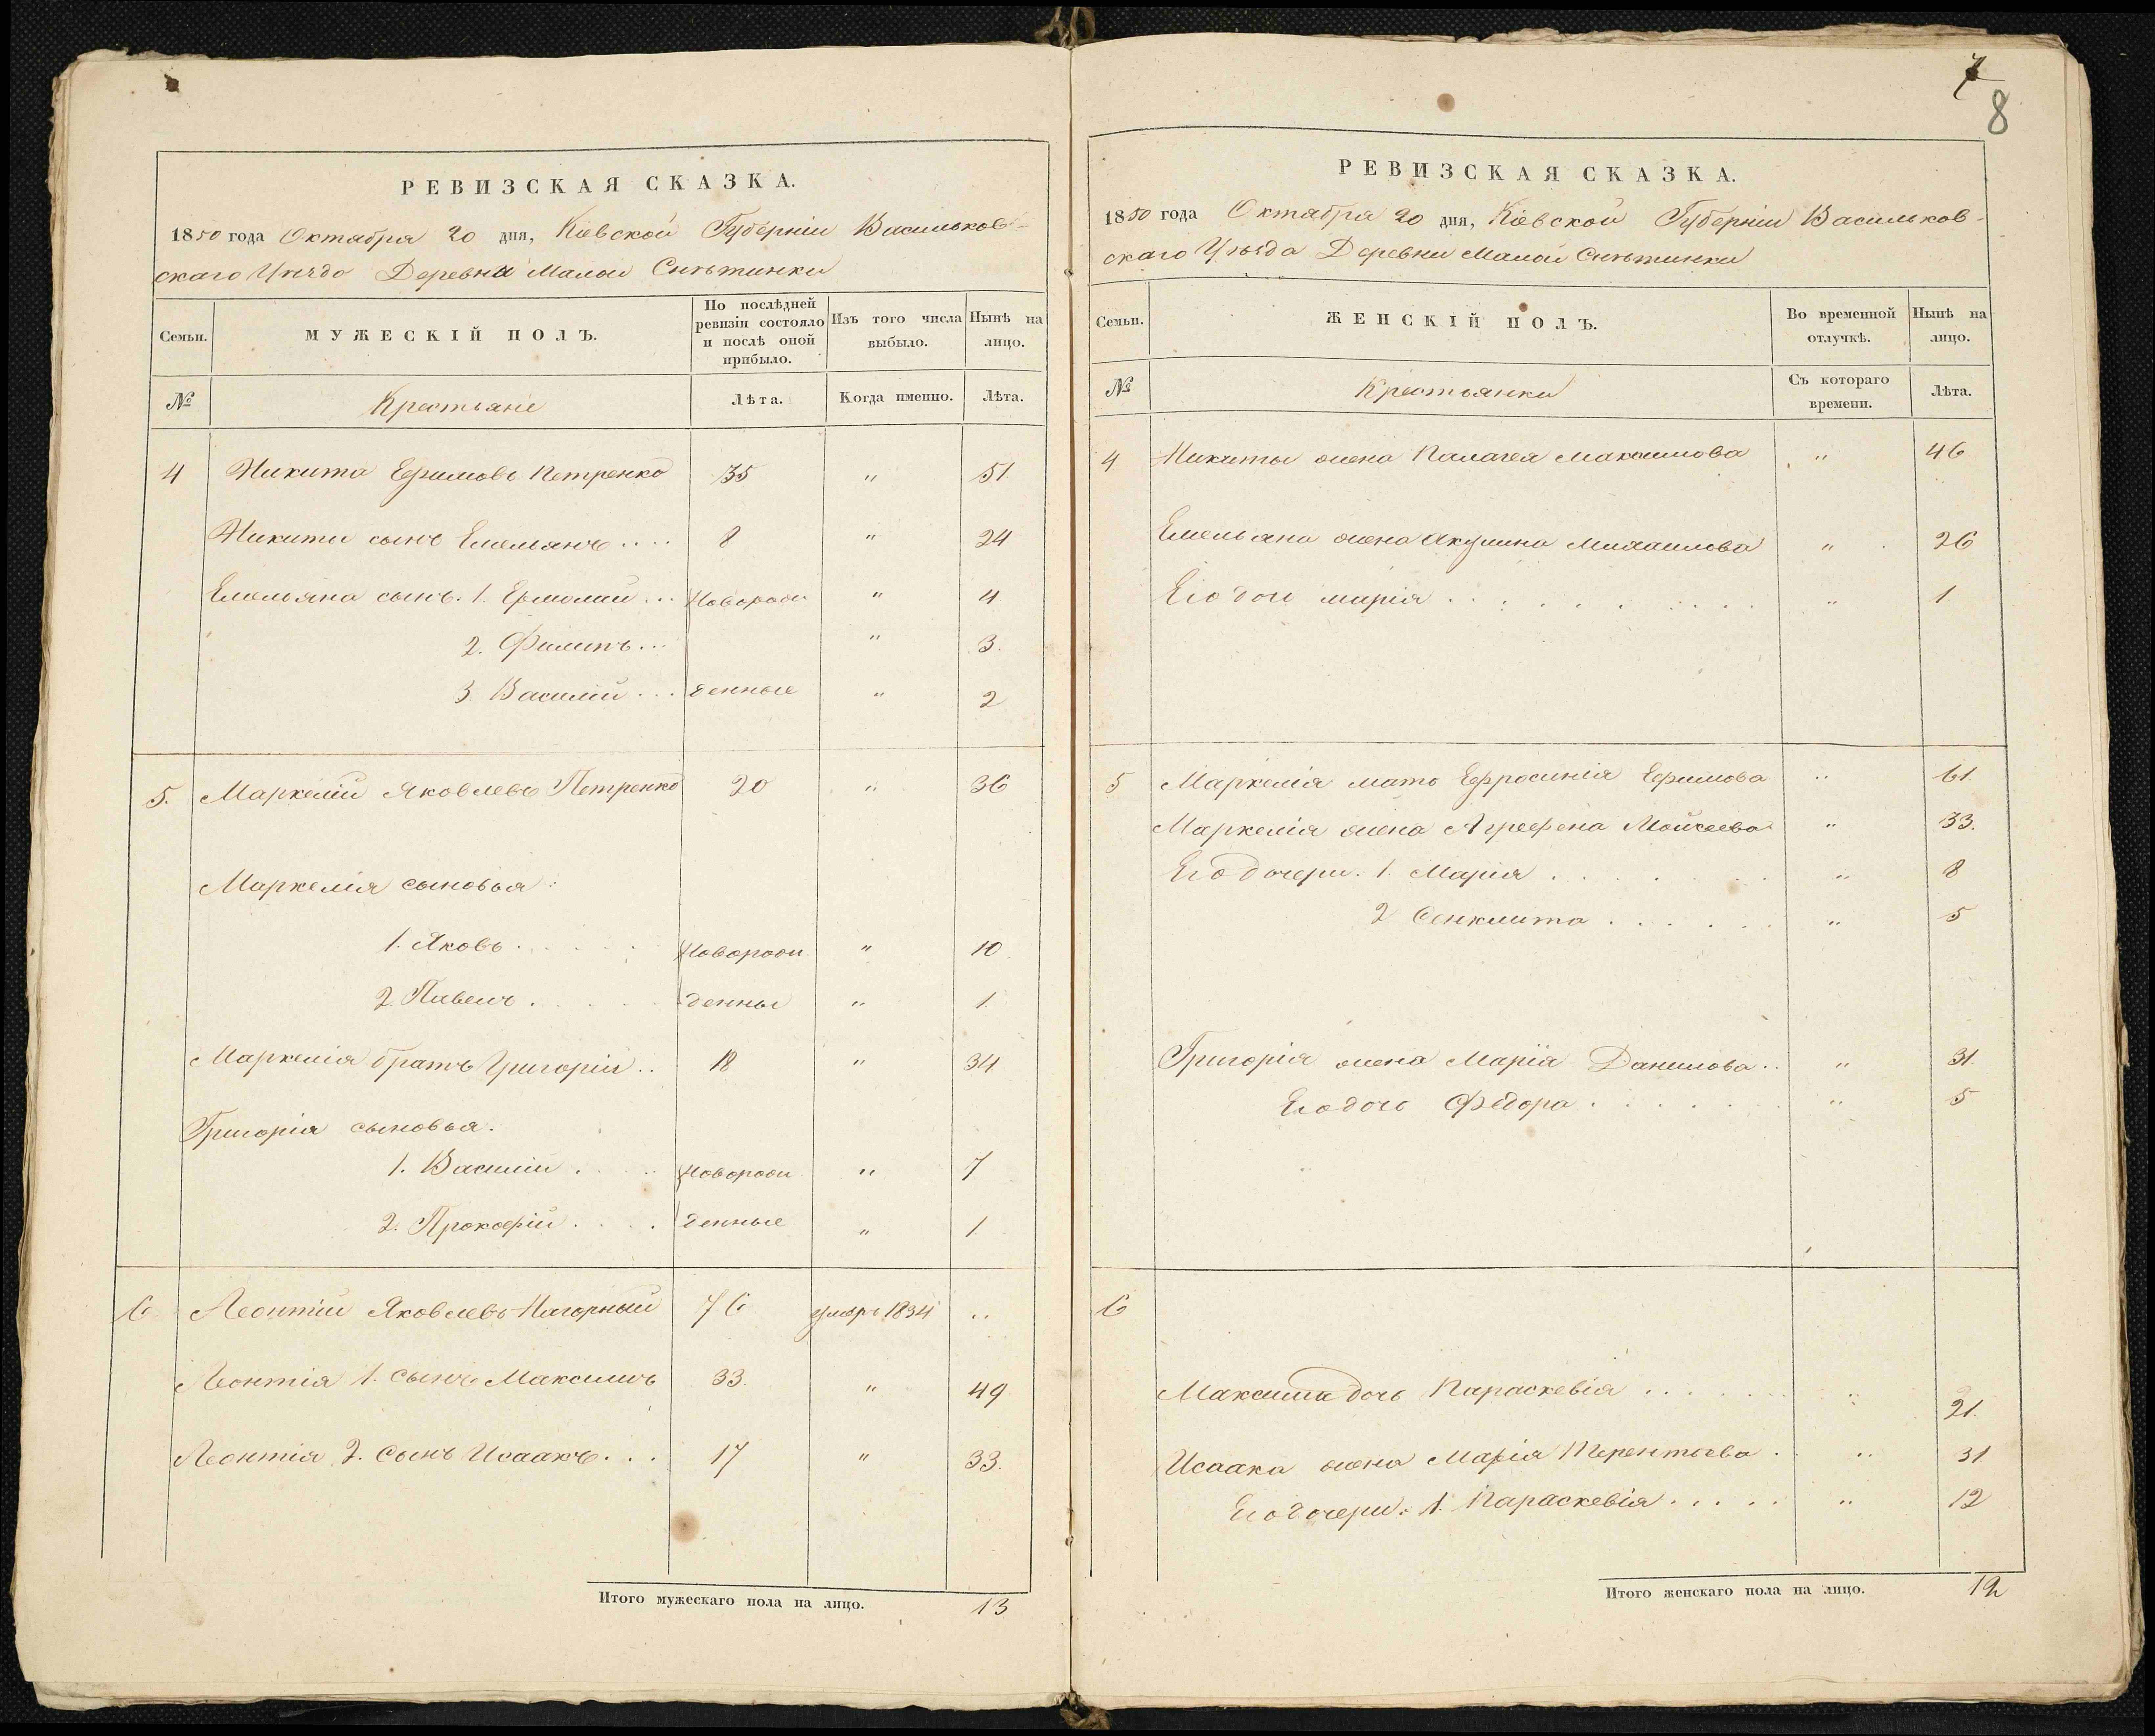 РЕВИЗСКАЯ СКАЗКА.
1850 года Октября 20 дня, Кіевской Губерніи Васильков-
скаго Уѣзда Деревни Малой Снѣтинки
Семьи.
МУЖЕСКІЙ ПОЛЪ.
По послѣдней ревизіи состояло и послѣ оной прибыло.
Изъ того числа выбыло.
Нынѣ на лицо.
№ Крестьяне Лѣта. Когда именно. Лѣта.
4 Никита Ефимовъ Петренко 35 " 51.
Никиты сынъ Емельянъ .... 8 " 24
Емельяна сынъ. 1. Ермолай ... Новорож " 4
2. Филипъ ... " 3.
3 Василій ... денные " 2
5. Маркелій Яковлевъ Петренко 20 " 36
Маркелія сыновья:
1. Яковъ ..... Новорож " 10
2. Павелъ ..... денны " 1.
Маркелія братъ Григорій .. 18 " 34
Григорія сыновья.
1. Василій .... Новорож " 7
2. Прокофій .... денные " 1.
6. Леонтій Яковлевъ Нагорный 76 умеръ 1834 "
Леонтія 1. сынъ Максимъ 33. " 49
Леонтія 2. сынъ Исаакъ ... 17 " 33.
Итого мужескаго пола на лицо. 13
7
8
РЕВИЗСКАЯ СКАЗКА.
1850 года Октября 20 дня, Кіевской Губерніи Васильков-
скаго Уѣзда Деревни Малой Снѣтинки
Семьи.
ЖЕНСКІЙ ПОЛЪ.
Во временной отлучкѣ.
Нынѣ на лицо.
№ Крестьянки Съ котораго времени. Лѣта.
4 Никиты жена Палагея Максимова " 46
Емельяна жена Акулина Михаилова " 26
Его дочь Марія .......... " 1
5 Маркелія мать Ефросинія Ефимова " 61.
Маркелія жена Агрефена Мойсеева " 33.
Его дочери: 1. Марія ....... " 8
2 Сенклита ...... " 5
Григорія жена Марія Данилова .. " 31.
Его дочь Федора ....... " 5
6
Максима дочь Параскевія ....... " 21.
Исаака жена Марія Терентьева .. " 31
Его дочери: 1. Параскевія ..... " 12
Итого женскаго пола на лицо. 12